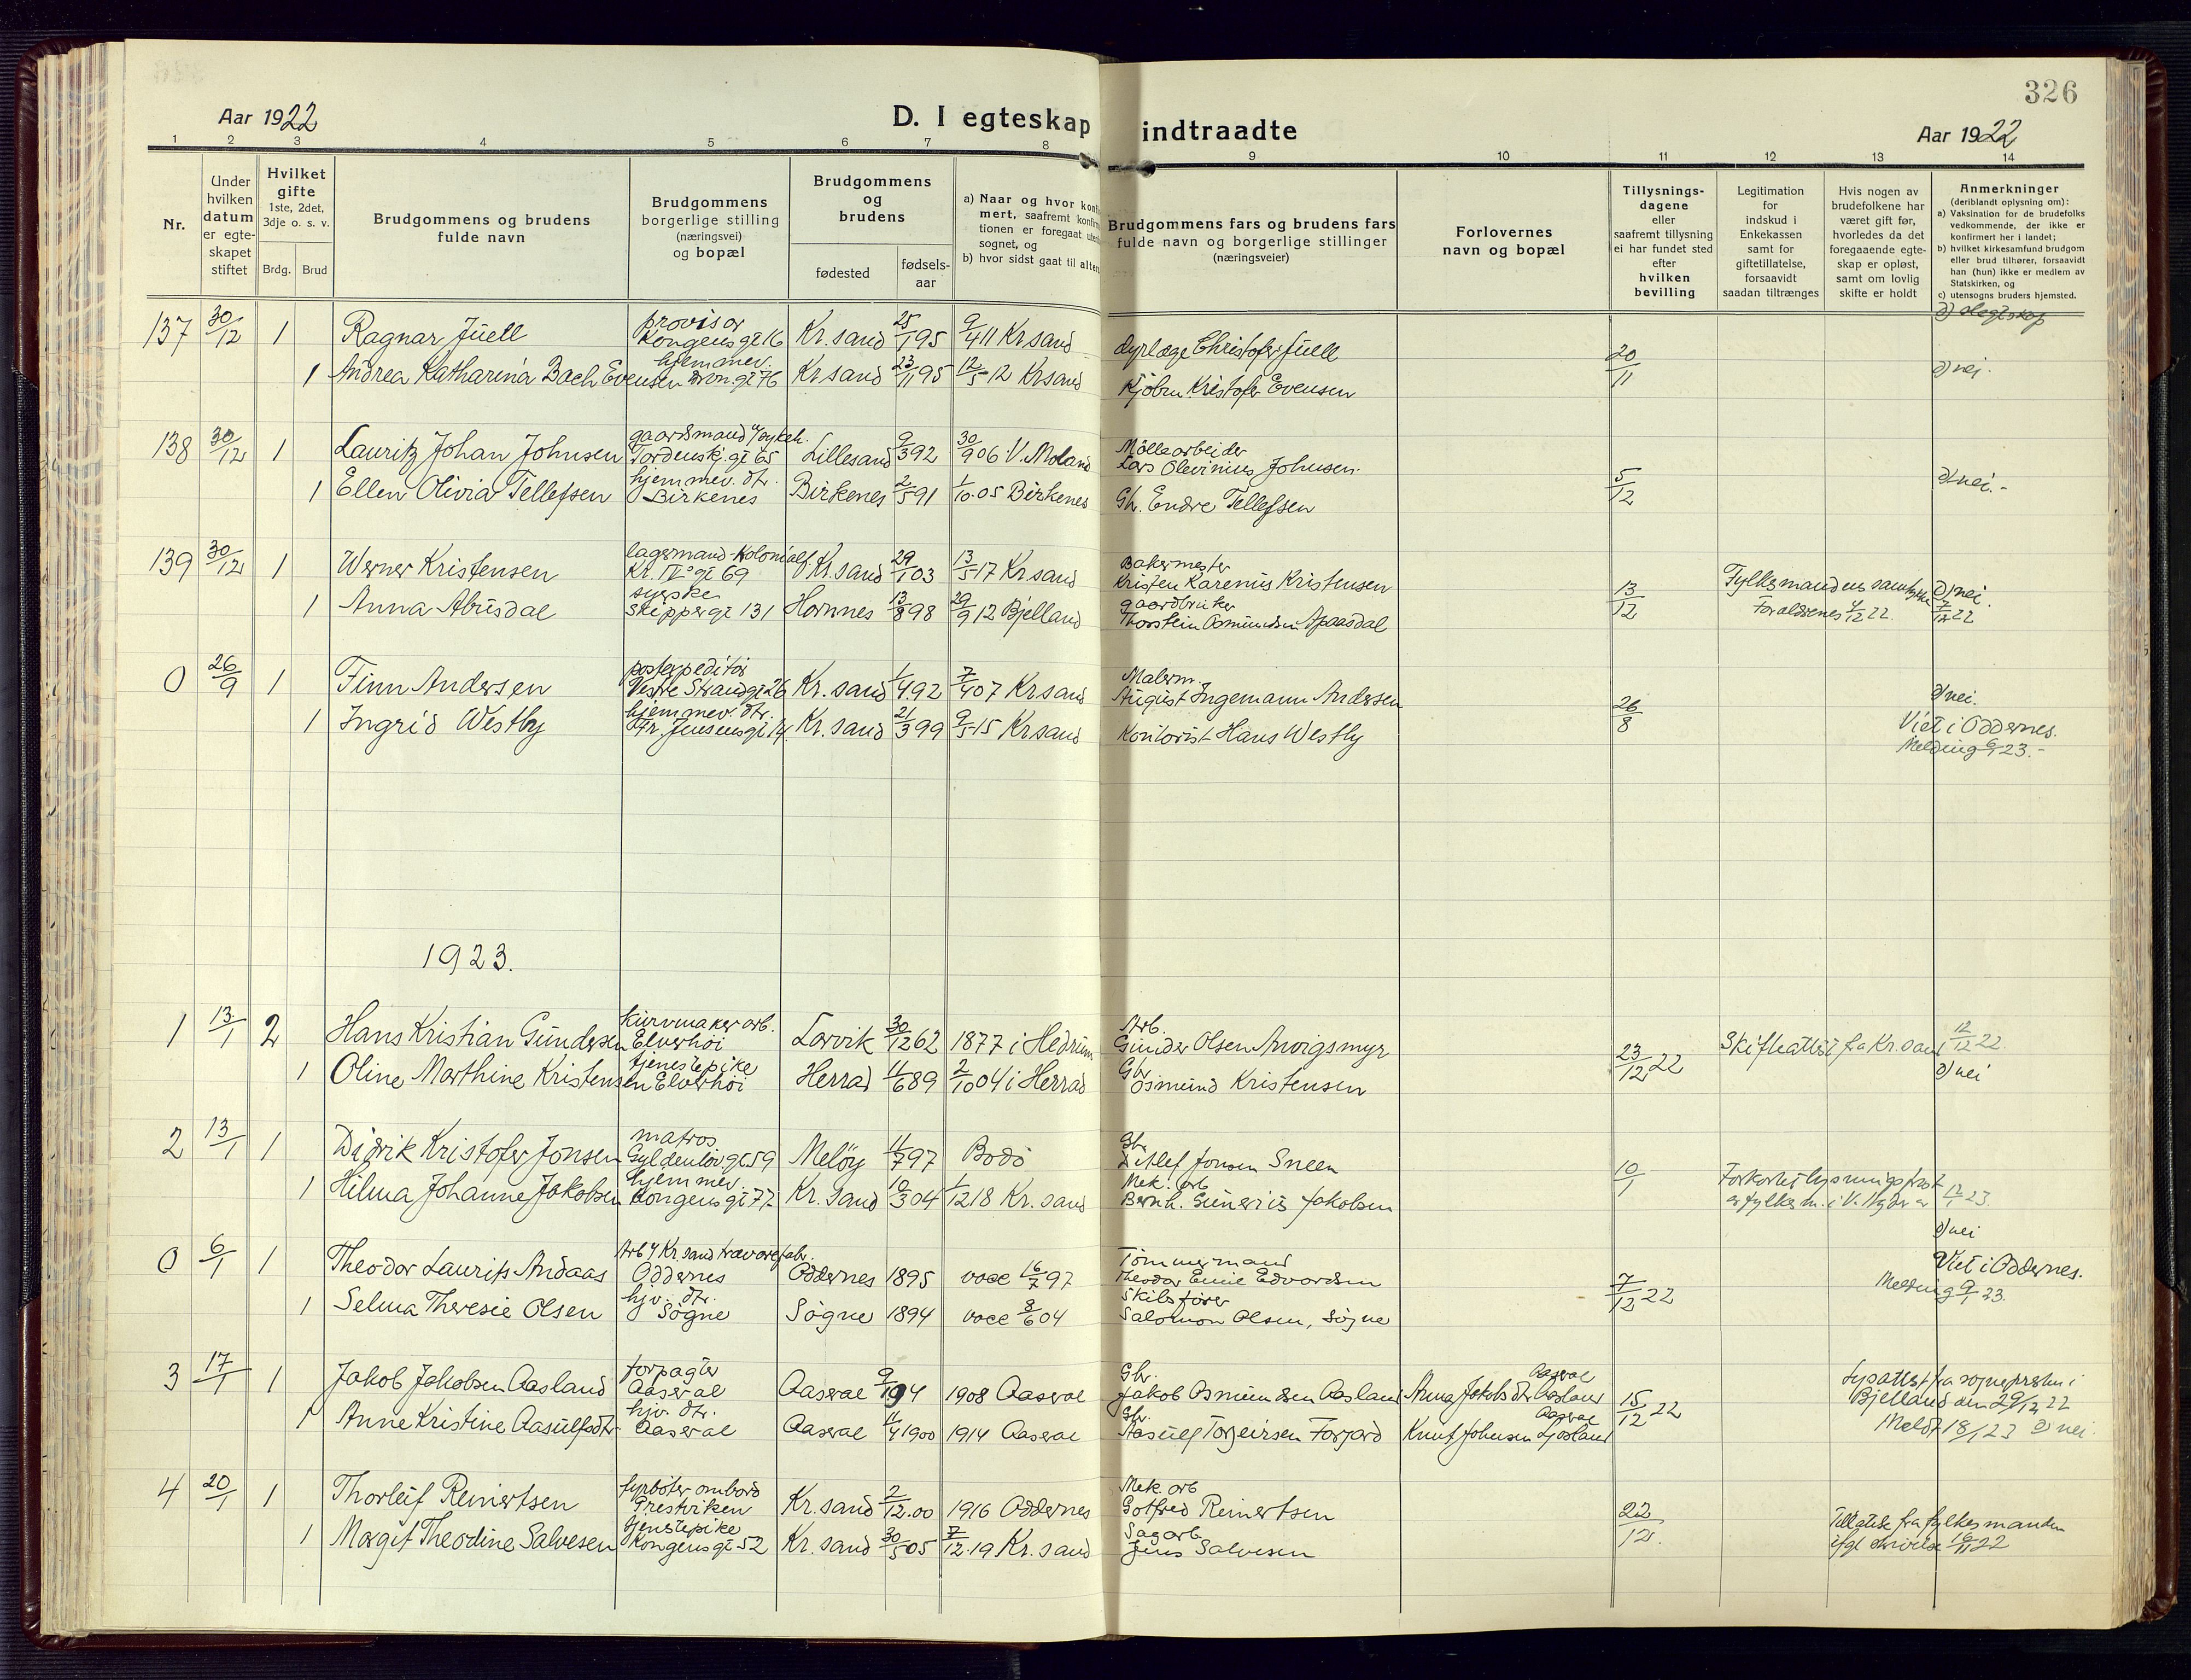 326
Aar 1922
D. I egteskap indtraadte
Aar 1922
1 2 3 4 5 6 7 8 9 10 11 12 13 14
Nr.
Under
hvilken
datum
er egte-
skapet
stiftet
Hvilket
gifte
1ste, 2det,
3dje o. s. v.
Brdg. Brud
Brudgommens og brudens
fulde navn
Brudgommens
borgerlige stilling
(næringsvei)
og bopæl
Brudgommens
og
brudens
fødested
fødsels-
aar
a) Naar og hvor konfir-
mert, saafremt konfirma-
tionen er foregaat utenfor
sognet, og
b) hvor sidst gaat til alters
Brudgommens fars og brudens fars
fulde navn og borgerlige stillinger
(næringsveier)
Forlovernes
navn og bopæl
Tillysnings-
dagene
eller
saafremt tillysning
ei har fundet sted
efter
hvilken
bevilling
Legitimation
for
indskud i
Enkekassen
samt for
giftetillatelse,
forsaavidt
saadan tiltrænges
Hvis nogen av
brudefolkene har
været gift før,
hvorledes da det
foregaaende egte-
skap er opløst,
samt om lovlig
skifte er holdt
Anmerkninger
(deriblandt oplysning om):
a) Vaksination for de brudefolks
vedkommende, der ikke er
konfirmert her i landet;
b) hvilket kirkesamfund brudgom
eller brud tilhører, forsaavidt
han (hun) ikke er medlem av
Statskirken, og
c) utensogns bruders hjemsted.
d) slegtskap
137 30/12 1 Ragnar Juell provisor Kongensgt 16 Kr.sand 25/1 95 9/4 11 Kr sand dyrlæge Christofer Juell 20/11
1 Andrea Katharina Bach Evensen hjemmev. Dron.gt 76 Kr sand 23/11 95 12/5 12 Kr sand Kjøbm Kristofer Evensen d) nei.
138 30/12 1 Lauritz Johan Johnsen gaardsmand Tordenskj.gt 65 Lillesand 9/3 92 30/9 06 V. Moland Møllearbeider Lars Olevinius Johnsen. 5/12
1 Ellen Olivia Tellefsen hjemmev. dtr. Birkenes Birkenes 2/5 91 1/10.05 Birkenes Gbr. Endre Tellefsen d) nei.-
139 30/12 1 Werner Kristensen lagermand-Kolonial Kr. IV's gt 69 Kr.sand 29/1 03 13/5 17 Kr sand Bakermester Kristen Karenius Kristensen 13/12 Fylkesmandens samtykke 7/12 22 d) nei.
1 Anna Abusdal syerske Skippergt 131 Hornnes 13/8 98 29/9 12 Bjelland gaardbruker Thorstein Osmundsen Forældrenes 4/12 22
0 26/9 1 Finn Andersen postexpeditør Vestre Strandgt 26 Kr. sand 1/4.92 7/4 07 Kr sand Malerm. August Ingemann Andersen 26/8 d) nei.
1 Ingrid Westby hjemmev. dtr. Fr. Jensensgt 14 Kr. sand 21/3 99 9/5 15 Kr sand Kontorist Hans Westby Viet i Oddernes.
Melding 6/1 23.-
1923.
1 13/1 2 Hans Kristian Gundersen Kurvmaker arb. Elverhøi Larvik 30/12 62 1877 i Hedrum Arb. Gunder Olsen 23/12 22 Skifteattest fra Kr.sand 12/12 22.
1 Oline Marthine Kristensen tjenestepike Elverhøi Herrad 11/6 89 2/10 04 i Herrad Gbr Osmund Kristensen d) nei
2 13/1 1 Didrik Kristofer Jonsen matros Gyldenløv.gt 59 Meløy 11/7 97 Bodø Gbr. Ditlef Jonsen Sneen 10/1 Forkortet lysningsfrist
1 Hilma Johanne Jakobsen hjemmev. Kongensgt 77 Kr. sand 10/3 04 1/12 18 Kr. sand Mek. arb Bernh. Gunerius Jakobsen av fylkesm. i V. Agder av 12/1 23.
d) nei
0 6/1 1 Theodor Laurits Andaas Arb v/ Kr.sand trævarefabr. Oddernes Oddernes 1895 vacc 16/7 97 Tømmermand Theodor Emil Edvardsen 7/12 22 Viet i Oddernes.
1 Selma Theresie Olsen hjv. dtr. Søgne Søgne 1894 vacc 8/6 04 Skibsfører Salomon Olsen, Søgne Melding 9/1 23.
3 17/1 1 Jakob Jakobsen Aasland forpagter Aaseral Aaseral 9/1 94 1908 Aaseral Gbr. Jakob Osmundsen Aasland Anna Jakobsdtr Aasland Aaseral 15/12 22 Lysattest fra sognepresten i
1 Anne Kristine Aasulfsdtr hjv. dtr. Aaseral Aaseral 11/4 1900 1914 Aaseral Gbr. Aasulf Torjeirsen Knut Johnsen Ljosland Aaseral Bjelland den 29/12 22
Meldt 18/1 23 d) nei.
4 20/1 1 Thorleif Reinertsen fyrbøter ombord Kr.sand 2/12.00 1916 Oddernes Mek. arb Gotfred Reinertsen 22/12. Tillatelse fra fylkesmanden
1 Margit Theodine Salvesen tjenstepike Kongensgt 52 Kr. sand 30/5 05 7/12.19 Kr. sand Sagarb Jens Salvesen ifgl skrivelse 16/11 22